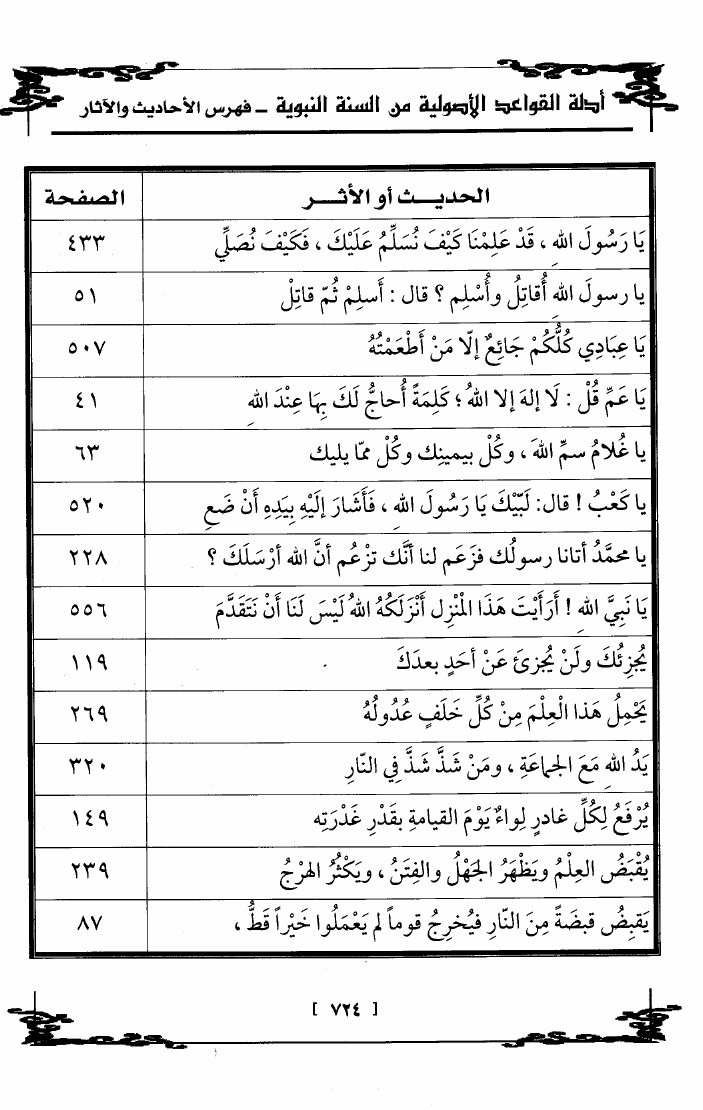 أدلة القواعد الأصولية من السنة النبوية - فهرس الأحاديث والآثار
الحديـــث أو الأثـــر الصفحة
يَا رَسُولَ اللهِ ، قَدْ عَلِمْنَا كَيْفَ نُسَلِّمُ عَلَيْكَ ، فَكَيْفَ نُصَلِّي ٤٣٣
يا رسولَ اللهِ أُقاتِلُ وأُسْلِم ؟ قال : أَسلِمْ ثُمّ قاتِلْ ٥١
يَا عِبَادِي كُلُّكُمْ جَائِعٌ إلّا مَنْ أَطْعَمْتُهُ ٥٠٧
يَا عَمِّ قُلْ : لَا إلهَ إلا اللهُ ؛ كَلِمَةً أُحاجُّ لَكَ بِهَا عِنْدَ اللهِ ٤١
يا غُلامُ سمِّ اللهَ ، وكُلْ بيمينِك وكُلْ ممّا يليك ٦٣
يا كَعْبُ ! قال: لَبَّيْكَ يَا رَسُولَ اللهِ ، فَأَشَارَ إلَيْهِ بِيَدِهِ أَنْ ضَعِ ٥٢٠
يا محمَّدُ أتانا رسولُك فزَعَم لنا أنَّك تزْعُم أنَّ الله أرْسَلَكَ ؟ ٢٢٨
يَا نَبِيَّ اللهِ ! أَرَأَيْتَ هَذَا المْنْزِل أَنْزَلَكَهُ اللهُ لَيْسَ لَنَا أَنْ نَتَقَدَّمَ ٥٥٦
يُجزِئُكَ ولَنْ يُجزئَ عَنْ أحَدٍ بعدَكَ ١١٩
يَحْمِلُ هَذا الْعِلْمَ مِنْ كُلِّ خَلَفٍ عُدُولُهُ ٢٦٩
يَدُ اللهِ مَعَ الجماعَةِ ، ومَنْ شَذَّ شَذَّ فِي النّارِ ٣٢٠
يُرْفَعُ لِكُلِّ غادرٍ لِواءٌ يَوْمَ القيامةِ بقَدْرِ غَدْرَتِه ١٤٩
يُقْبَضُ العِلْمُ ويَظْهَرُ الجَهْلُ والفِتَنُ ، ويَكْثُرُ الهرْجُ ٢٣٩
يَقبِضُ قبضَةً مِنَ النّارِ فيُخرِجُ قوماً لم يَعْمَلُوا خَيْراً قَطُّ ، ٨٧
[ ٧٢٤ ]